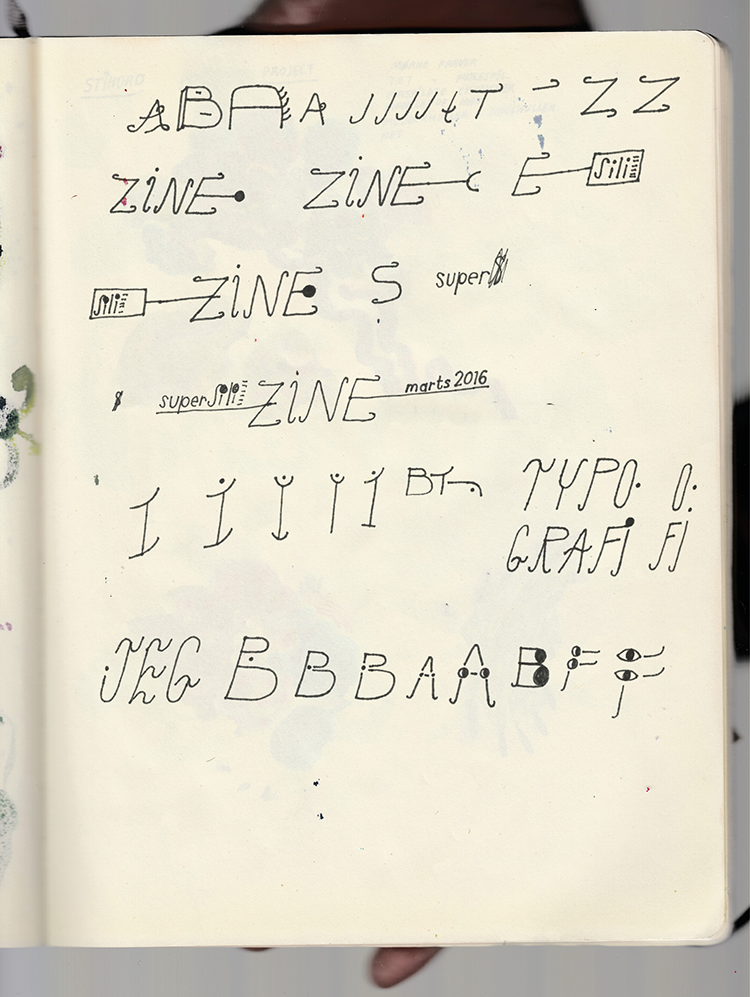 ABAA JJJJttT ZZ
ZINE ZINE E Sili
Sili ZINE S superS
S superSili ZINE marts 2016
IIIII BT TYPO O
GRAFI FI
JEG BBBAABFF